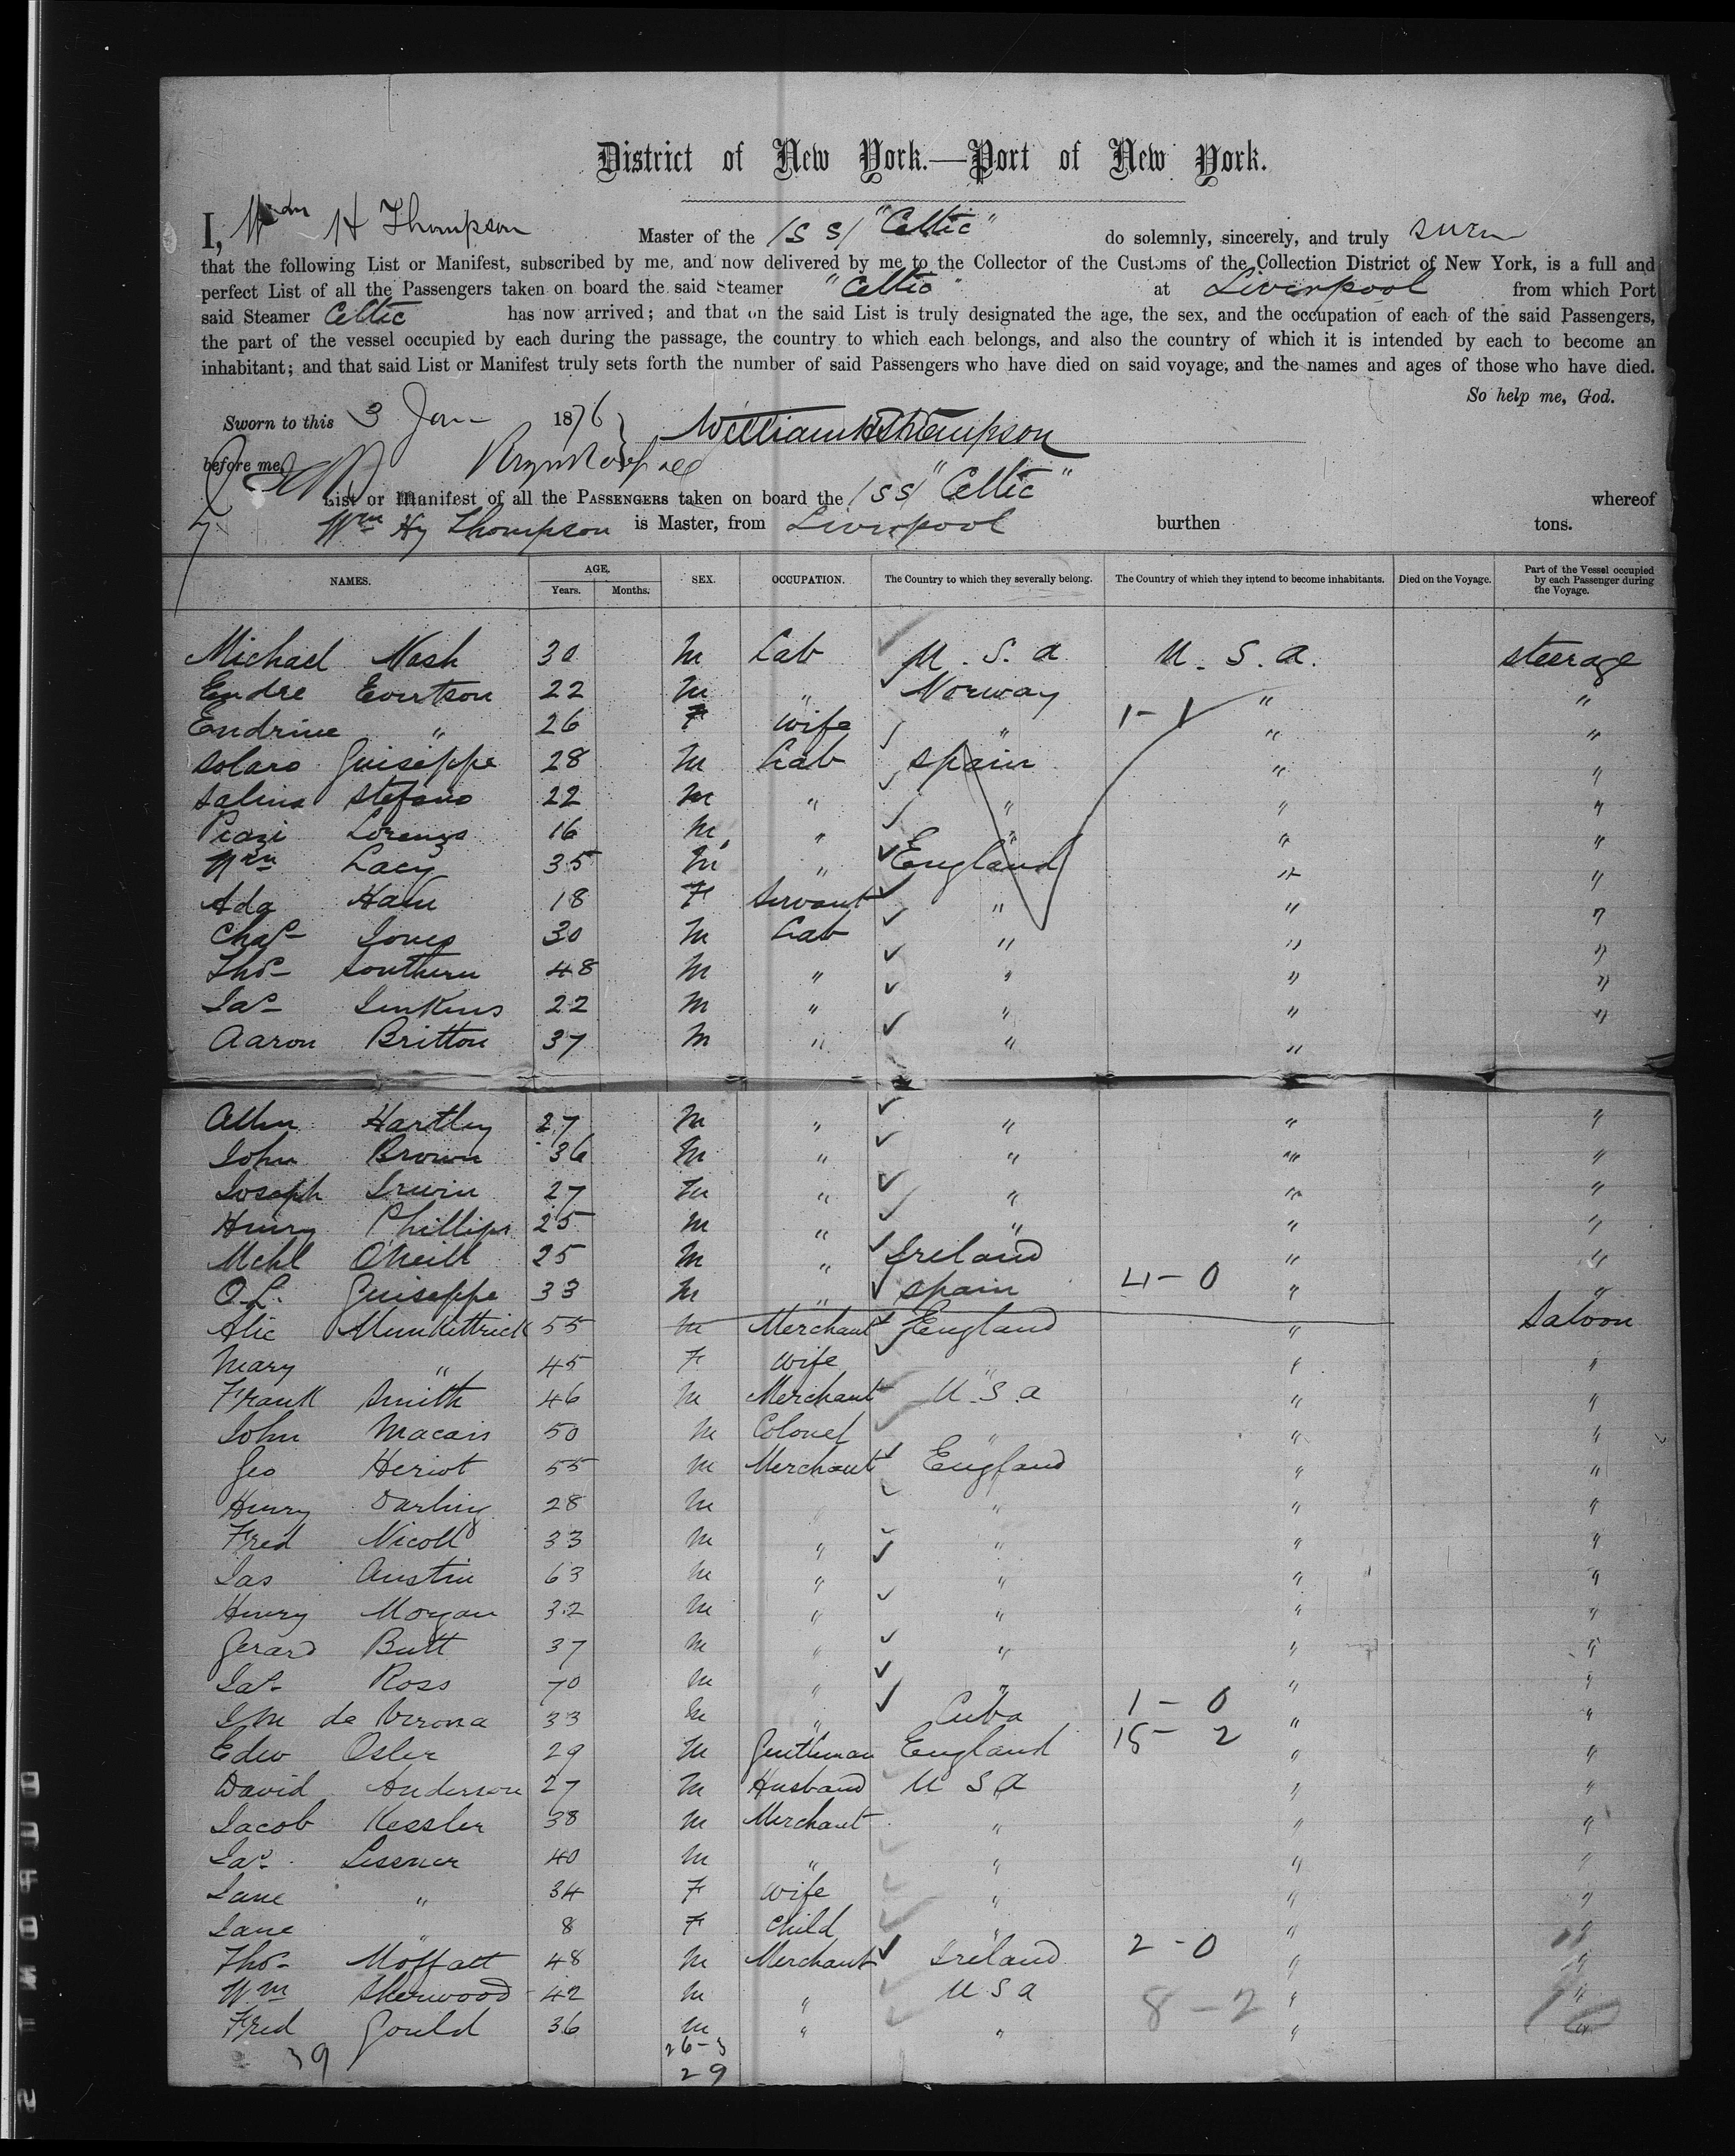 District of New York.—Port of New York.
I, Wm H Thompson Master of the (SS) "Celtic" do solemnly, sincerely, and truly swear
that the following List or Manifest, subscribed by me, and now delivered by me to the Collector of the Customs of the Collection District of New York, is a full and
perfect List of all the Passengers taken on board the said Steamer "Celtic" at Liverpool from which Port
said Steamer Celtic has now arrived; and that on the said List is truly designated the age, the sex, and the occupation of each of the said Passengers,
the part of the vessel occupied by each during the passage, the country to which each belongs, and also the country of which it is intended by each to become an
inhabitant; and that said List or Manifest truly sets forth the number of said Passengers who have died on said voyage, and the names and ages of those who have died.
So help me, God.
Sworn to this 3 Jan 1876 William H Thompson
before me,
List or Manifest of all the PASSENGERS taken on board the (SS) "Celtic" whereof
Wm Hy Thompson is Master, from Liverpool burthen tons.
NAMES. AGE. Years. Months. SEX. OCCUPATION. The Country to which they severally belong. The Country of which they intend to become inhabitants. Died on the Voyage. Part of the Vessel occupied by each Passenger during the Voyage.
Michael Nash 30 M Lab U.S.a U.S.a. steerage
Endre Evertson 22 M " Norway " "
Endrine " 26 F wife " 1-1 " "
Solaro Guiseppe 28 M Lab Spain " "
Salina Stefano 22 M " " " "
Piazi Lorenzo 16 M " " " "
Wm Lacy 35 M " England " "
Ada Ham 18 F Servant " " "
Chas Jones 30 M Lab " " "
Thos Southern 48 M " " " "
Jas Jenkins 22 M " " " "
Aaron Britton 37 M " " "
Allen Hartley 27 M " " " "
John Brown 36 M " " " "
Joseph Irwin 27 M " " " "
Henry Phillips 25 M " " " "
Mchl O'Neill 25 M " Ireland " "
O.L. Guiseppe 33 M " Spain 4-0 " "
Alic Munkittrick 55 M Merchant England " Saloon
Mary " 45 F Wife " " "
Frank Smith 46 M Merchant U.S.a " "
John Macais 50 M Colonel " " "
Geo Heriot 55 M Merchant England " "
Henry Darling 28 M " " "
Fred Nicoll 33 M " " " "
Jas Austin 63 M " " " "
Henry Morgan 32 M " " " "
Gerard Butt 37 M " " " "
Jas Ross 70 M " " " "
J M de Verona 33 M " Cuba 1-0 " "
Edw Osler 29 M Gentleman England 15-2 " "
David Anderson 27 M Husband U S a " "
Jacob Kessler 38 M Merchant " " "
Jas Lessner 40 M " " " "
Jane " 34 F Wife " " "
Jane " 8 F Child " " "
Thos Moffatt 48 M Merchant Ireland 2-0 " "
Wm Sherwood 42 M " U S a " "
Fred Gould 36 M " " 8-2 " "
39 26-3
29